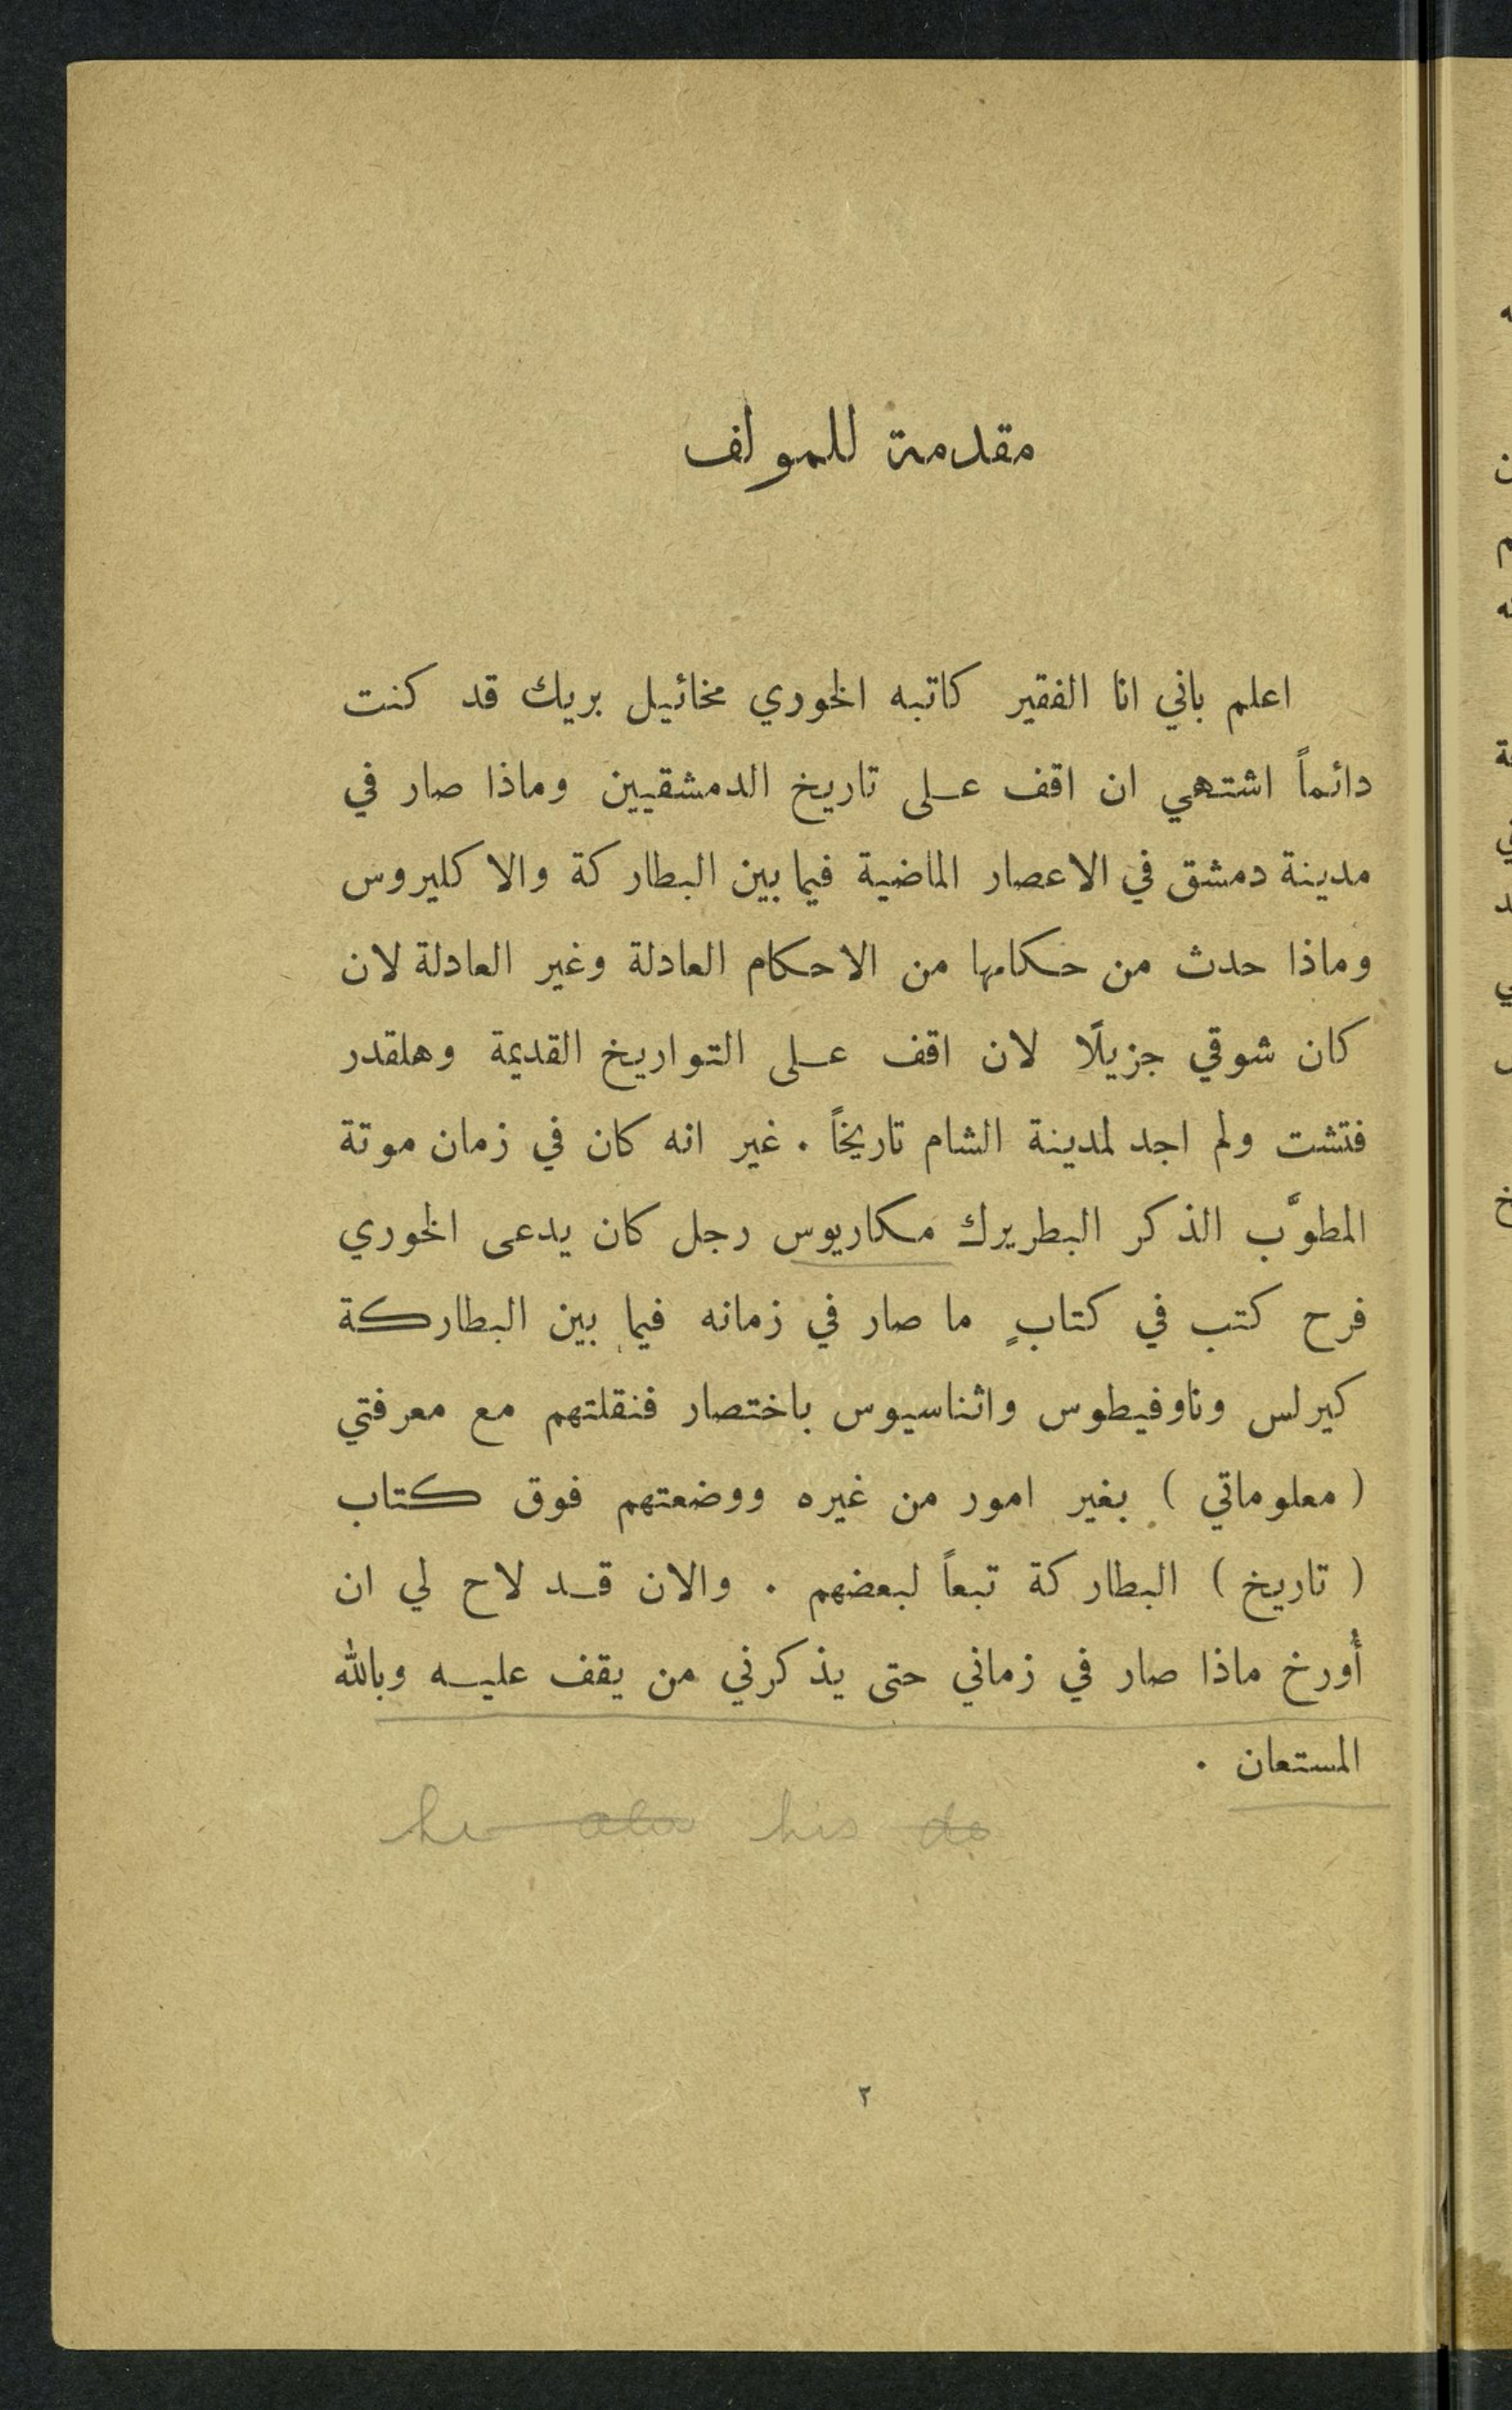 مقدمة للمولف
اعلم باني انا الفقير كاتبه الخوري مخائيل بريك قد كنت
دائماً اشتهي ان اقف على تاريخ الدمشقيين وماذا صار في
مدينة دمشق في الاعصار الماضية فيما بين البطاركة والاكليروس
وماذا حدث من حكامها من الاحكام العادلة وغير العادلة لان
كان شوقي جزيلًا لان اقف على التواريخ القديمة وهلقدر
فتشت ولم اجد لمدينة الشام تاريخاً . غير انه كان في زمان موتة
المطوَّب الذكر البطريرك مكاريوس رجل كان يدعى الخوري
فرح كتب في كتابٍ ما صار في زمانه فيما بين البطاركة
كيرلس وناوفيطوس واثناسيوس باختصار فنقلتهم مع معرفتي
( معلوماتي ) بغير امور من غيره ووضعتهم فوق كتاب
( تاريخ ) البطاركة تبعاً لبعضهم . والان قد لاح لي ان
أُورخ ماذا صار في زماني حتى يذكرني من يقف عليه وبالله
المستعان .
his
٢